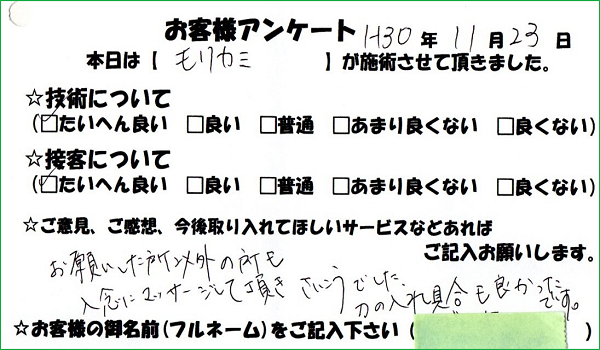 お客様アンケート H30 年 11 月 23 日
本日は【 モリカミ 】が施術させて頂きました。
☆技術について
(☑たいへん良い □良い □普通 □あまり良くない □良くない)
☆接客について
(☑たいへん良い □良い □普通 □あまり良くない □良くない)
☆ご意見、ご感想、今後取り入れてほしいサービスなどあれば
ご記入お願いします。
お願いした所以外の所も
入念にマッサージして頂き さいこうでした。
力の入れ具合も良かったです。
☆お客様の御名前(フルネーム)をご記入下さい( )